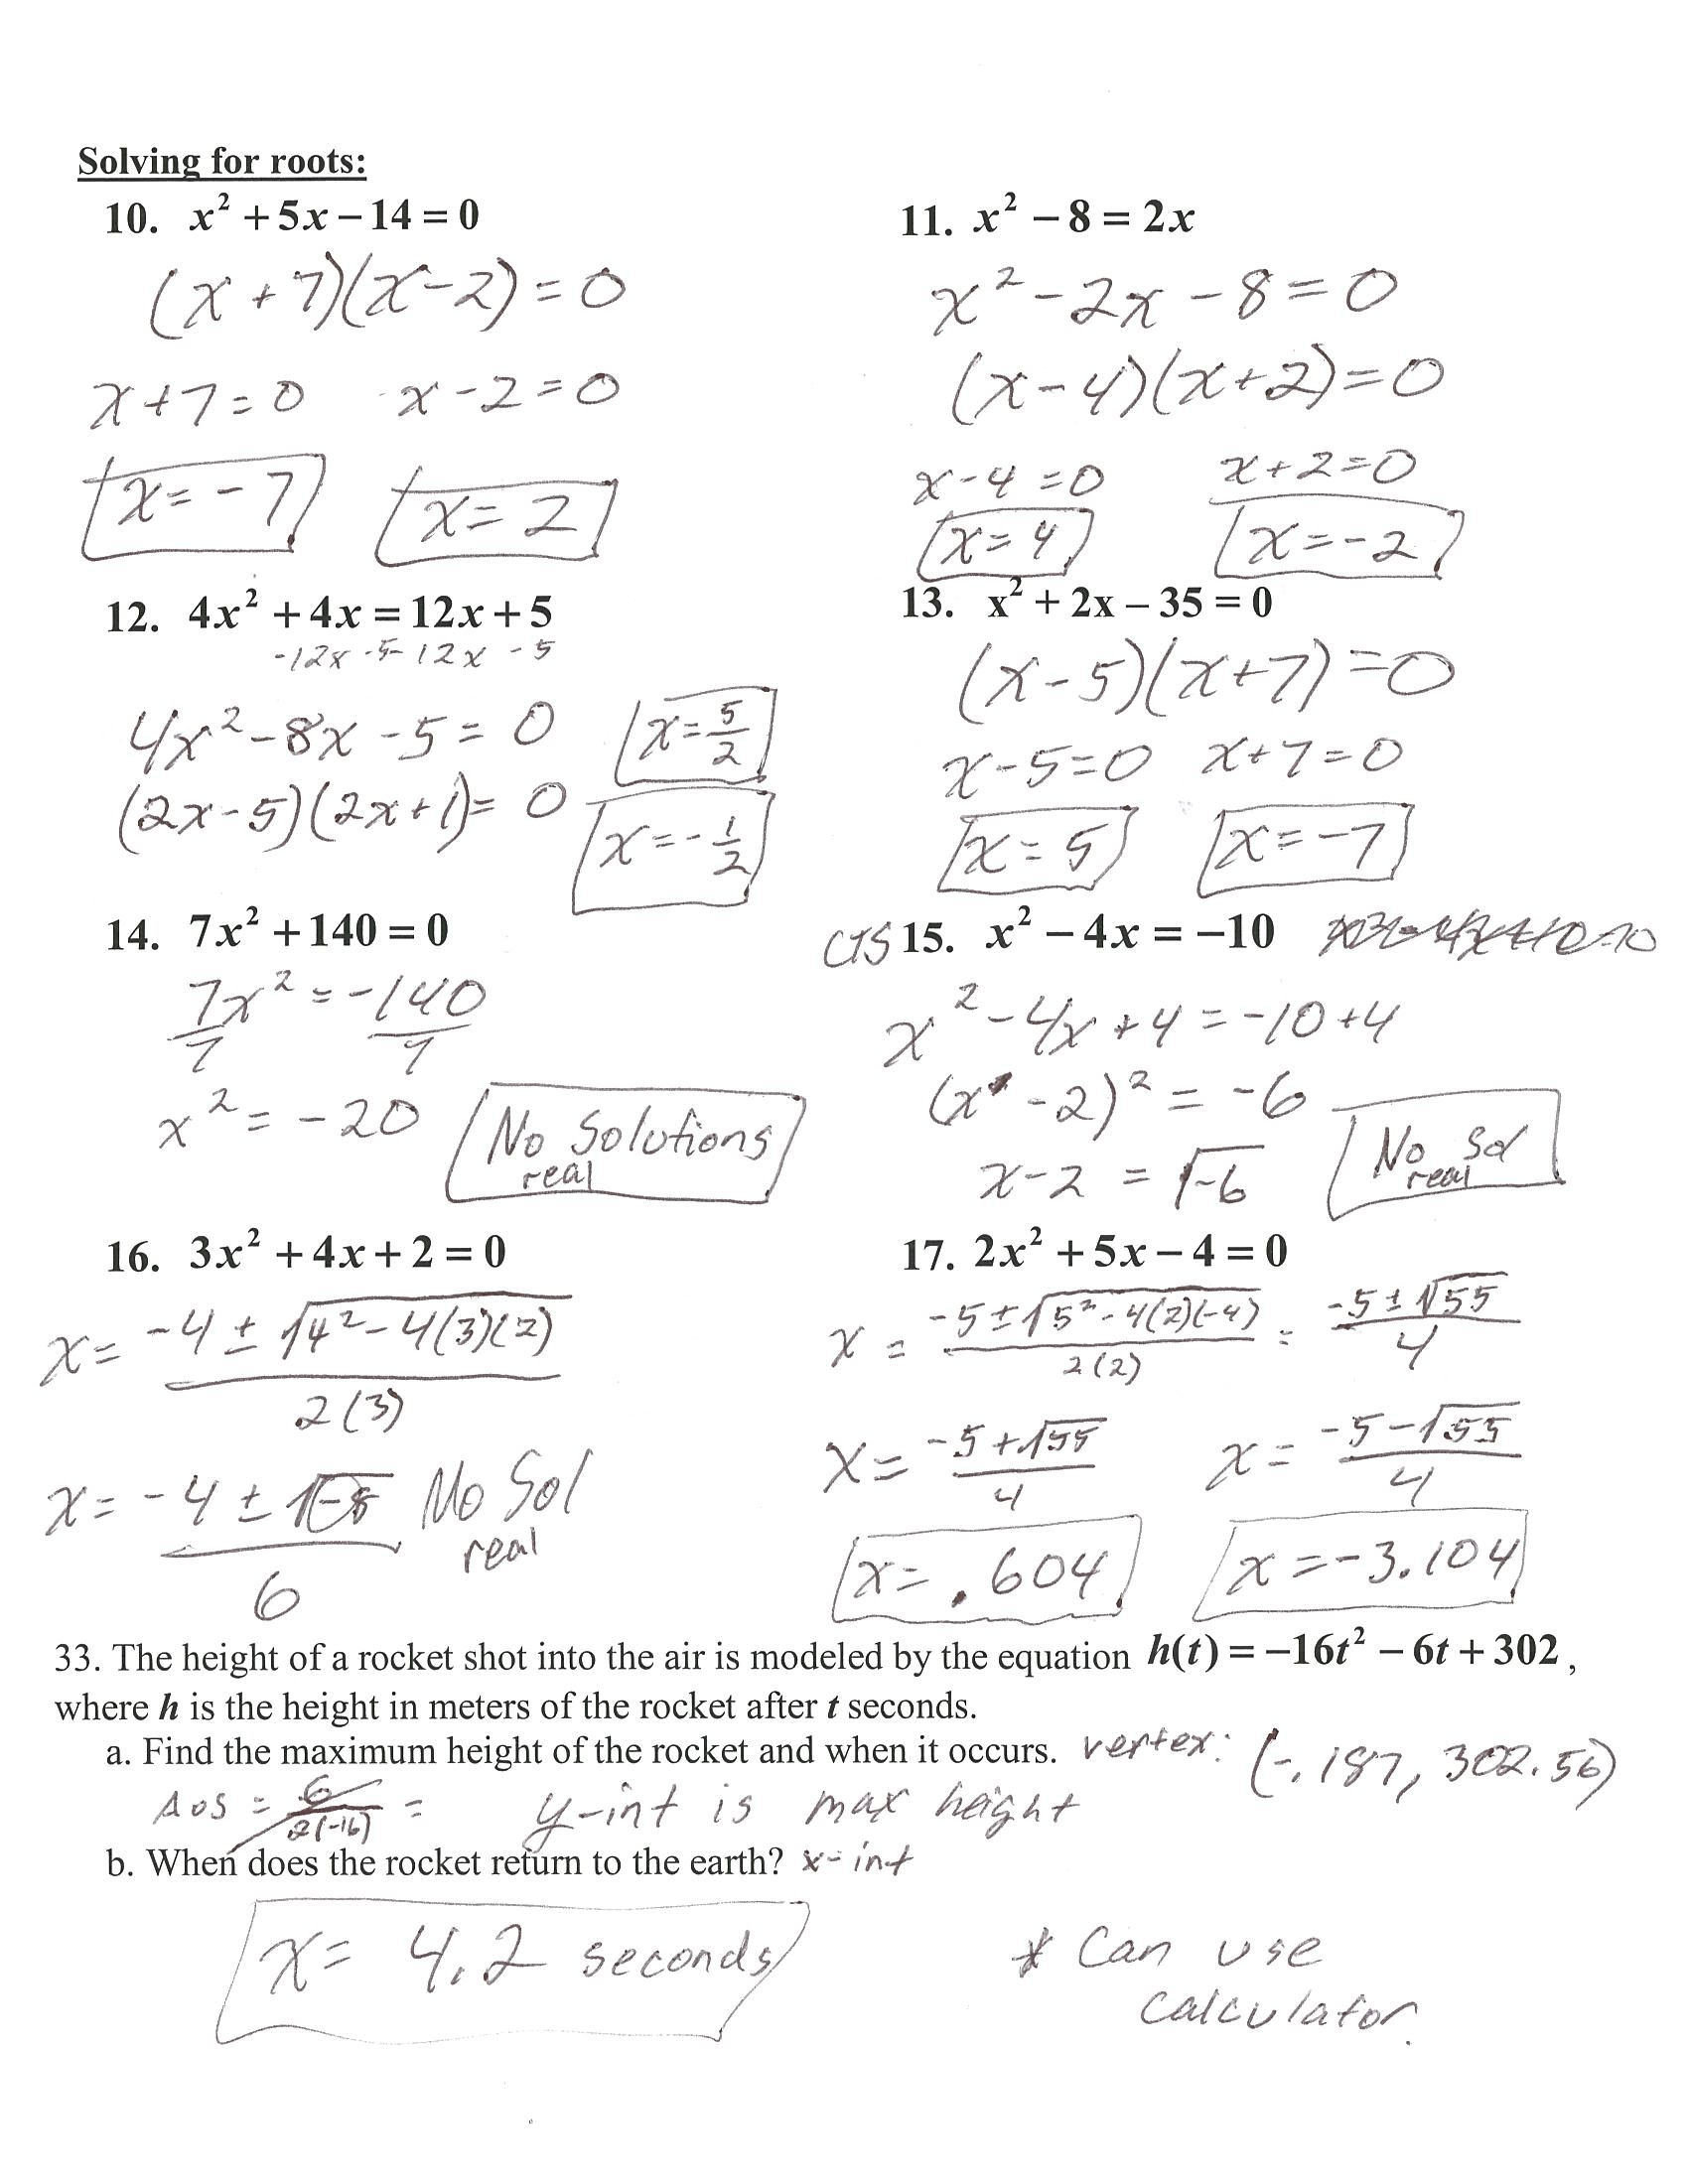 Solving for roots:
10. x² + 5x – 14 = 0
(x + 7)(x - 2) = 0
x + 7 = 0 x - 2 = 0
x = - 7 x = 2
11. x² – 8 = 2x
x² - 2x - 8 = 0
(x - 4)(x + 2) = 0
x - 4 = 0 x + 2 = 0
x = 4 x = -2
12. 4x² + 4x = 12x + 5
-12x -5 -12x -5
4x² - 8x - 5 = 0
(2x - 5)(2x + 1) = 0
x = 5/2
x = -1/2
13. x² + 2x – 35 = 0
(x - 5)(x + 7) = 0
x - 5 = 0 x + 7 = 0
x = 5 x = -7
14. 7x² + 140 = 0
7x²/7 = -140/7
x² = -20
No Solutions
real
CTS 15. x² – 4x = –10
x² - 4x + 4 = -10 + 4
(x - 2)² = -6
x - 2 = √-6
No Sol
real
16. 3x² + 4x + 2 = 0
x = (-4 ± √4² - 4(3)(2))/2(3)
x = (-4 ± √-8)/6 No Sol
real
17. 2x² + 5x – 4 = 0
x = (-5 ± √5² - 4(2)(-4))/2(2) = (-5 ± √55)/4
x = (-5 + √55)/4 x = (-5 - √55)/4
x = .604 x = -3.104
33. The height of a rocket shot into the air is modeled by the equation h(t) = –16t² – 6t + 302 ,
where h is the height in meters of the rocket after t seconds.
a. Find the maximum height of the rocket and when it occurs. vertex: (-.187, 302.56)
AOS = 6/2(-16) = y-int is max height
b. When does the rocket return to the earth? x-int
x = 4.2 seconds
* Can use
calculator.